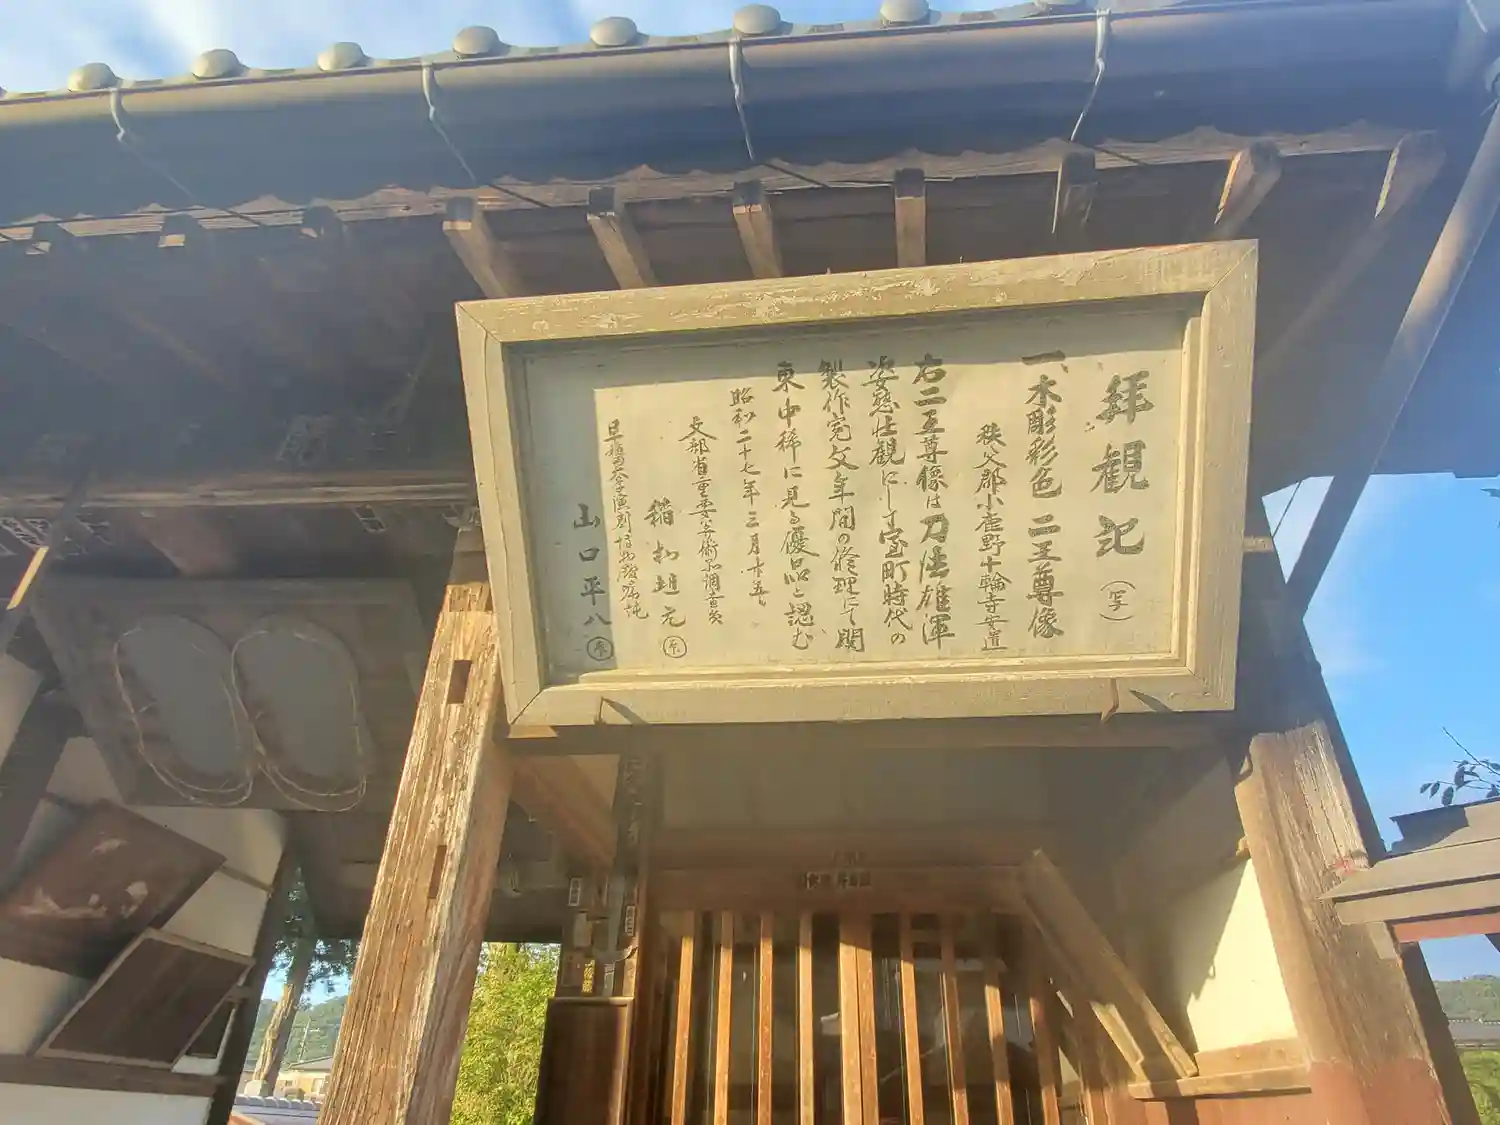 拝観記(写)
一木彫彩色 二王尊像
秩父郡小鹿野十輪寺安置
右二王尊像は刀法雄渾
姿態壮観にして室町時代の
製作寛文年間の修理にて関
東中稀に見る優品と認む
昭和二十七年三月十五日
文部省重要美術品調査員
稲村坦元
早稲田大学演劇博物館嘱託
山口平八